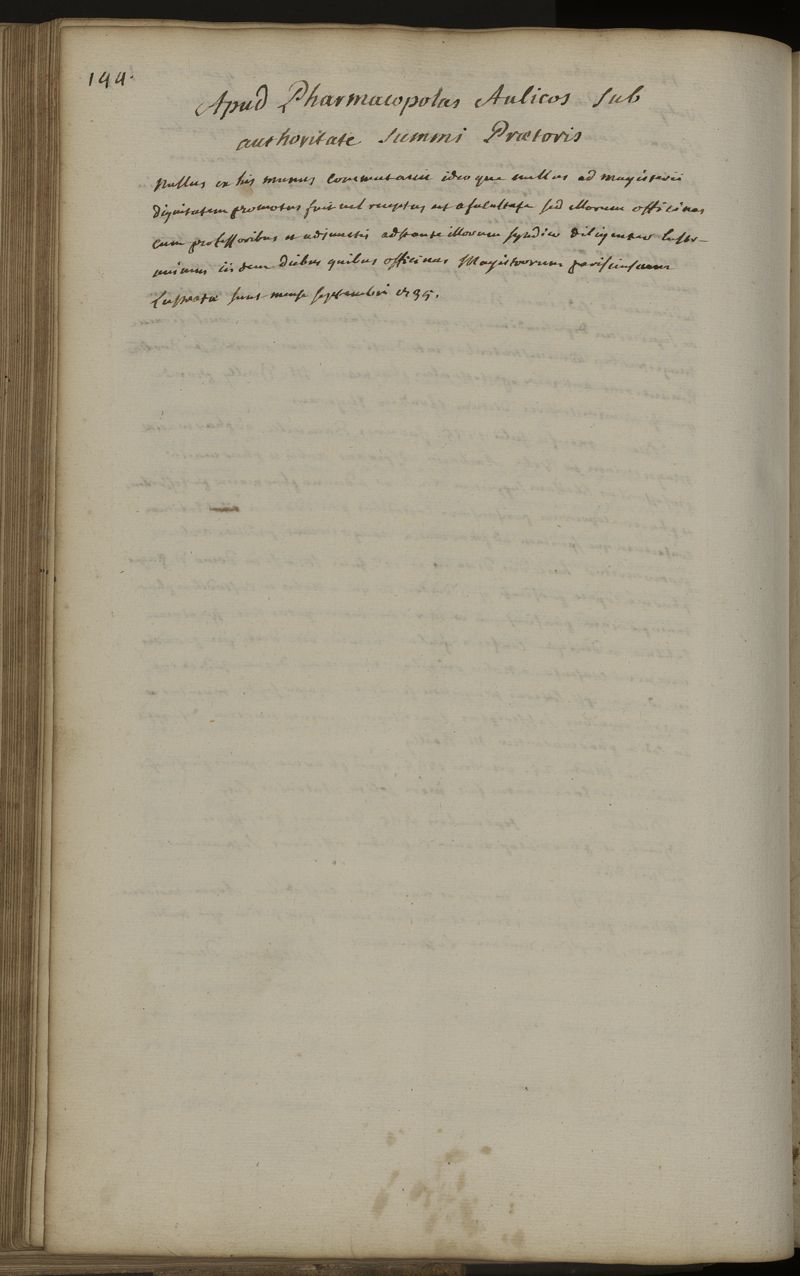 144.
Apud Pharmacopolas Aulicos sub
authoritate Summi Prætoris
Nullus ex his munus commutavit ideoque nullus ad magisterii
dignitatem promotus fuit vel receptus et a facultate sed illorum officinas
cum professoribus et adjunctis adstante illorum syndico diligenter lustra-
vimus iisdem diebus quibus officinas Magistrorum parisiensium
Lustratæ sunt mense septembri 1735.